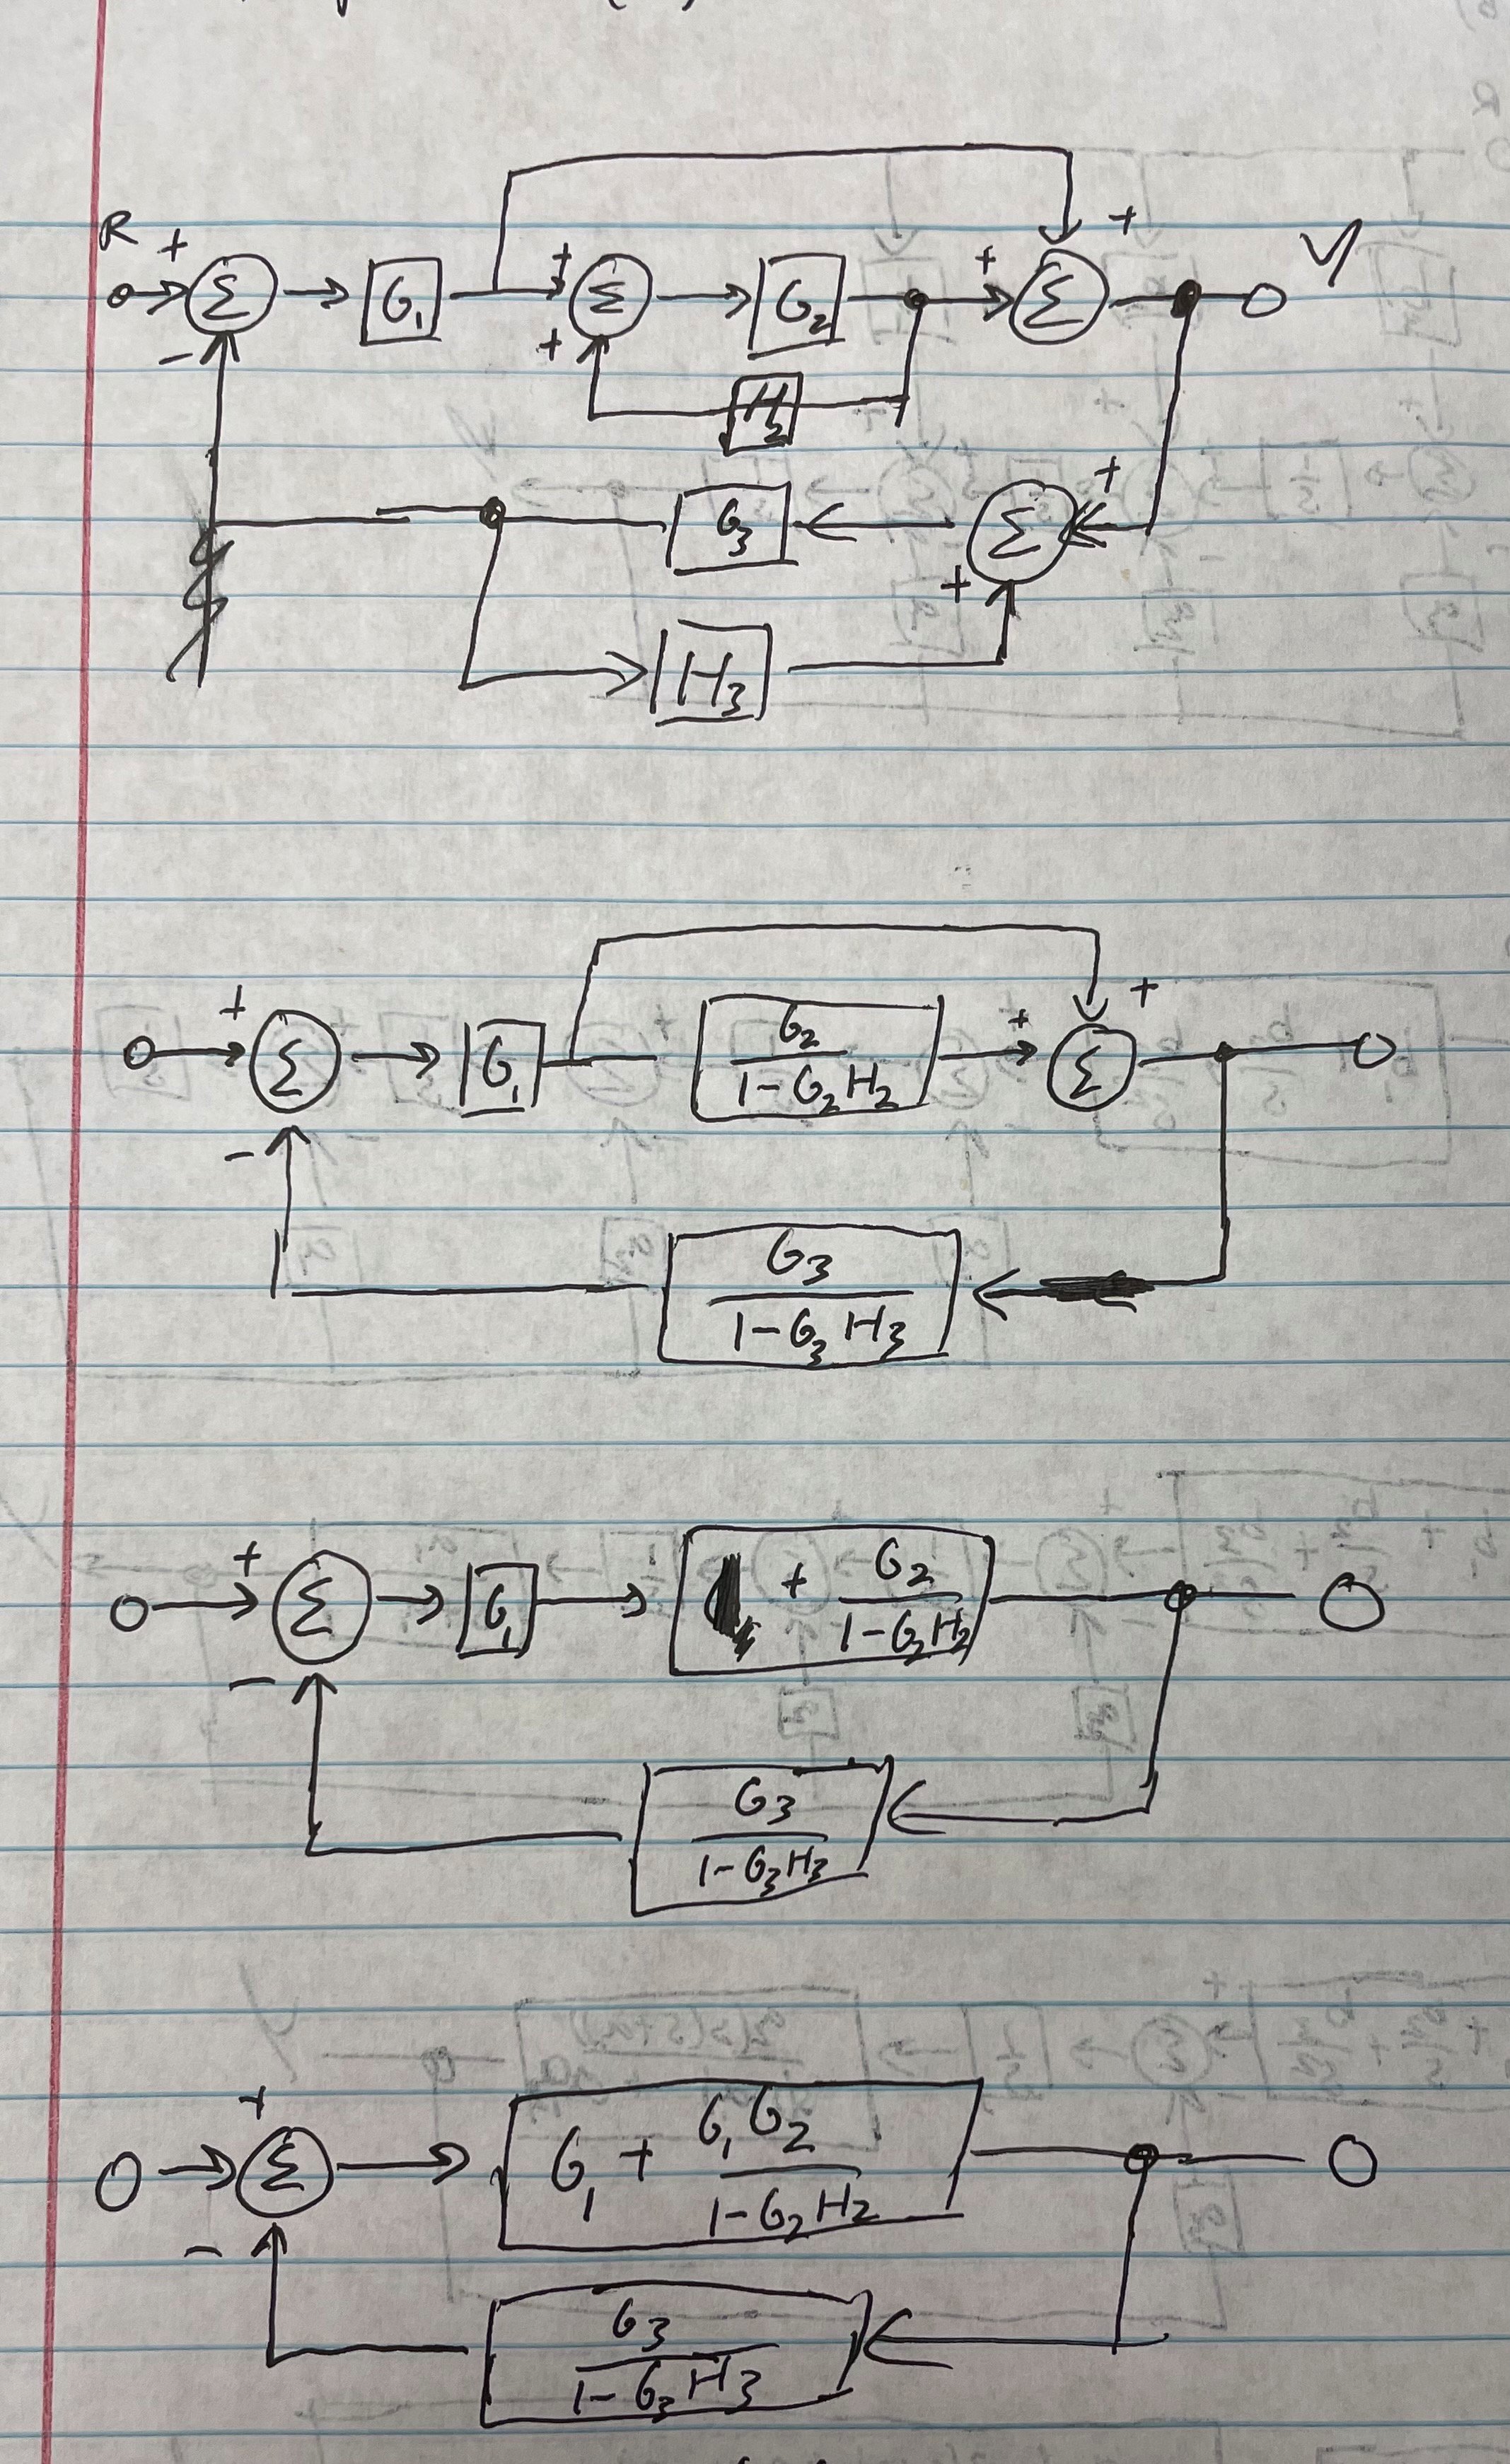 R + Σ G₁ + Σ G₂ + Σ + Y
- +
H₂
G₃ Σ +
+
H₃
+ Σ G₁ G₂ / 1-G₂H₂ + Σ +
-
G₃ / 1-G₃H₃
+ Σ G₁ 1 + G₂ / 1-G₂H₂
-
G₃ / 1-G₃H₃
+ Σ G₁ + G₁G₂ / 1-G₂H₂
-
G₃ / 1-G₃H₃